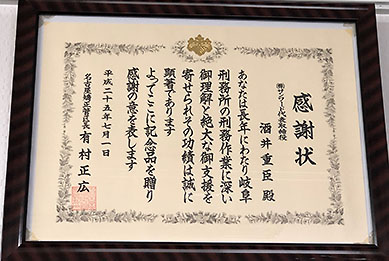 感謝状
代表取締役
酒井重臣殿
あなたは長年にわたり岐阜
刑務所の刑務作業に深い
御理解と絶大な御支援を
寄せられその功績は誠に
顕著であります
よってここに記念品を贈り
感謝の意を表します
平成二十五年七月一日
名古屋矯正管区長 有村正広